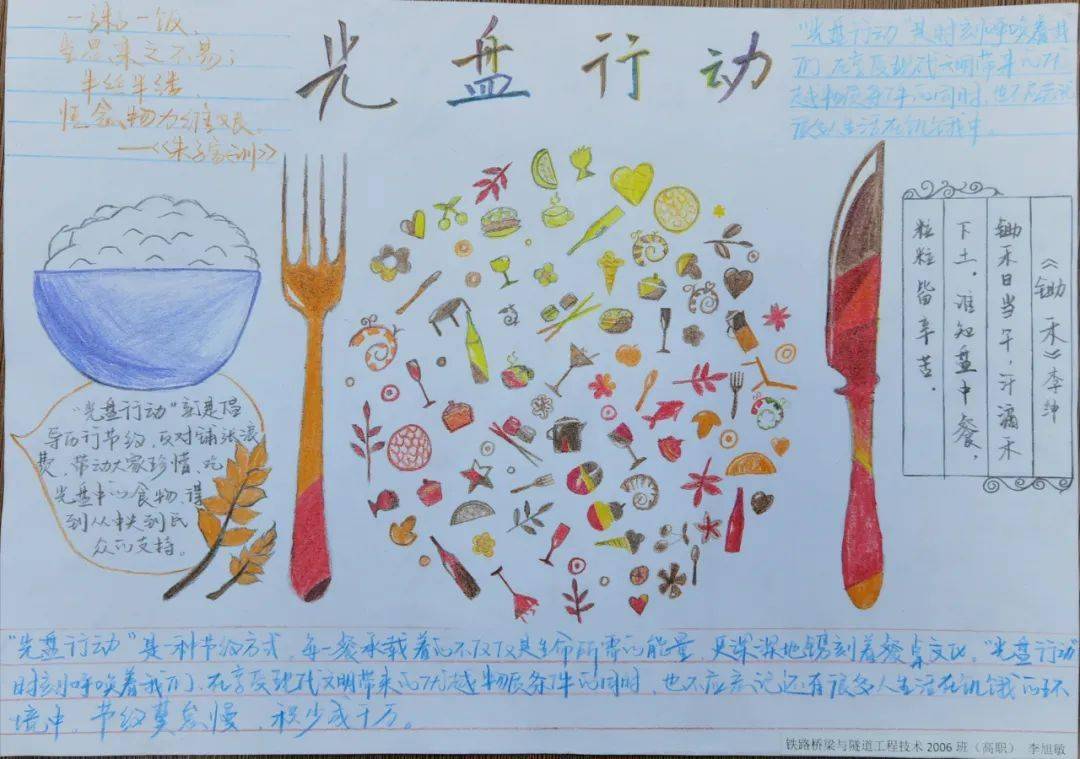 一粥一饭，
当思来之不易；
半丝半缕，
恒念物力维艰。
——《朱子家训》
光盘行动
“光盘行动”其时刻呼唤着我
们，在享受现代文明带来的优
越物质条件的同时，也不应忘记
很多人生活在饥饿
《锄禾》李绅
锄禾日当午，汗滴禾
下土。谁知盘中餐，
粒粒皆辛苦。
“光盘行动”就是倡
导厉行节约，反对铺张浪
费，带动大家珍惜，吃
光盘中的食物，得
到从中央到民
众的支持。
“光盘行动”是一种节约方式，每一餐承载着的不仅仅是生命所需的能量，更深深地镌刻着餐桌文化。“光盘行动”
时刻呼唤着我们，在享受现代文明带来的优越物质条件的同时，也不应忘记还有很多人生活在饥饿的环
境中，节约莫怠慢，积少成千万。
铁路桥梁与隧道工程技术 2006 班（高职） 李旭敏